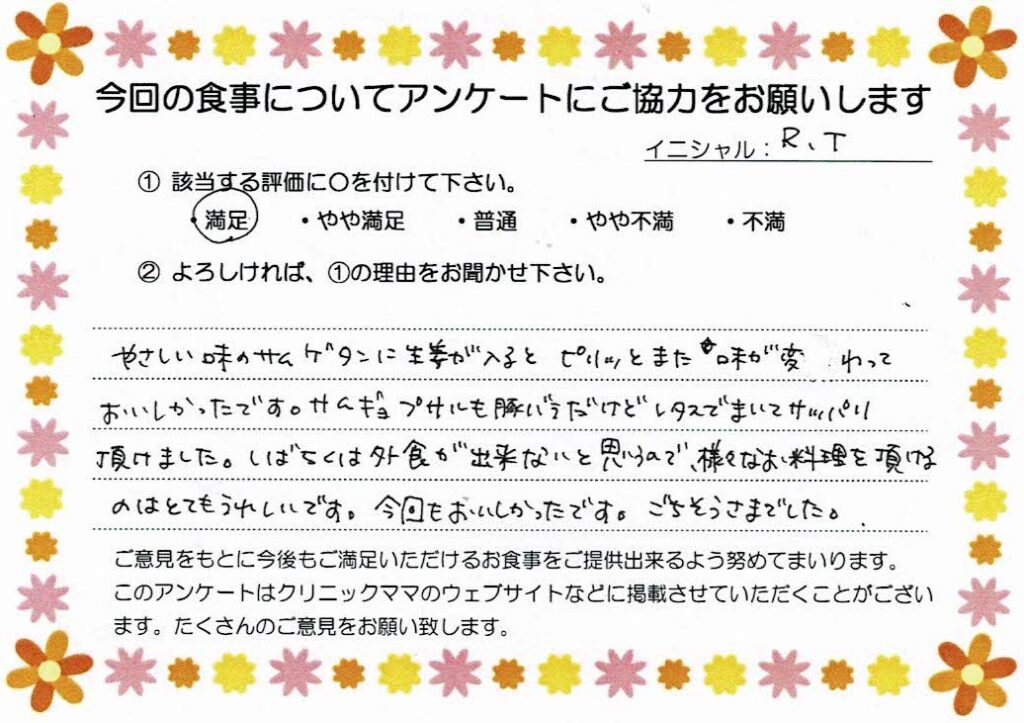 今回の食事についてアンケートにご協力をお願いします
イニシャル：R、T
① 該当する評価に〇を付けて下さい。
・満足 ・やや満足 ・普通 ・やや不満 ・不満
② よろしければ、①の理由をお聞かせ下さい。
やさしい味のサムゲタンに生姜が入ると ピリッとまた味が変わって
おいしかったです。サムギョプサルも豚バラだけどレタスでまいてサッパリ
頂けました。しばらくは外食が出来ないと思うので、様々なお料理を頂ける
のはとてもうれしいです。今回もおいしかったです。ごちそうさまでした。
ご意見をもとに今後もご満足いただけるお食事をご提供出来るよう努めてまいります。
このアンケートはクリニックママのウェブサイトなどに掲載させていただくことがござい
ます。たくさんのご意見をお願い致します。